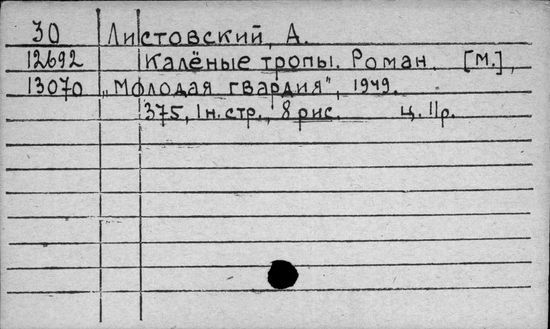 30 Листовский, А.
12692 Калёные тропы. Роман. [М.],
13070 „Молодая гвардия", 1949.
375, 1н.стр., 8 рис. ц. 11р.